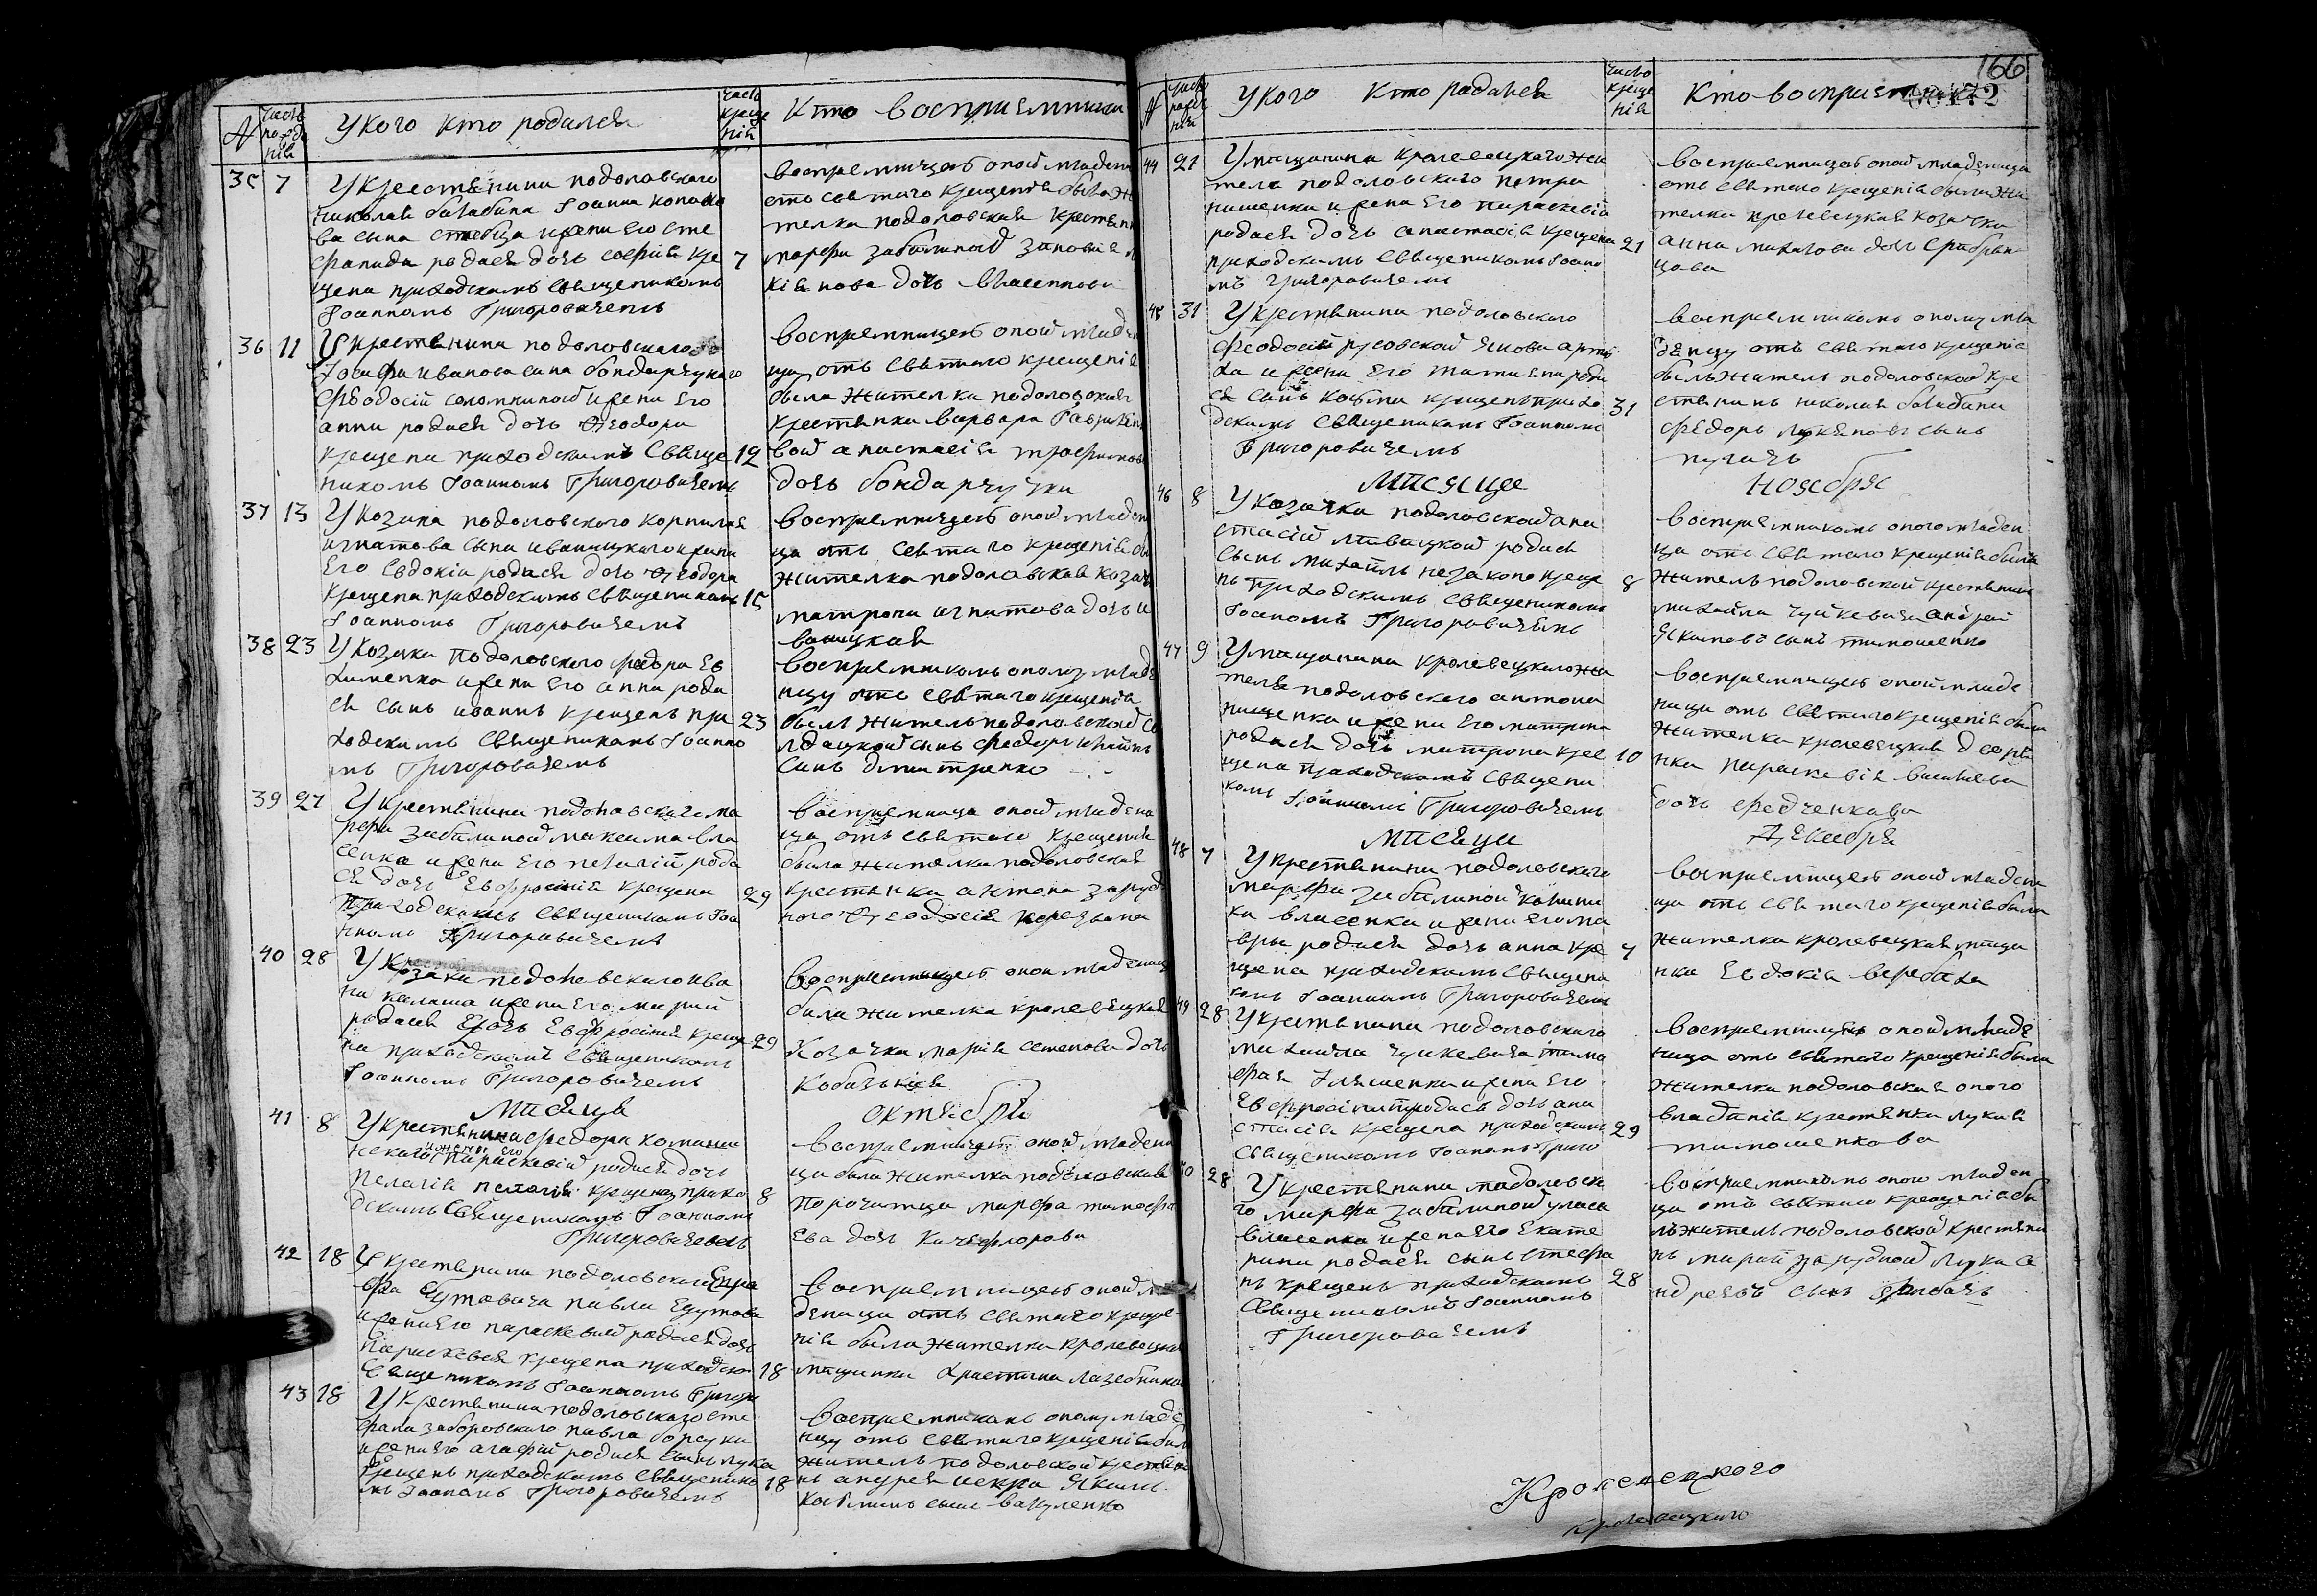 №
число рождения
У кого кто родился
число крещения
Кто восприемники
35 7
У крестянина подоловского
николая балабина Iоанна
сына стебца и жени его сте
фанида родася дочь софия кре
щена приходскимъ священикомъ
Iоанномъ Григоровичемъ
7
восприемницею оной младен
отъ святаго крещения была жи
телка подоловская крестянк
марфи забилиной зиновия
дочь власенкова
36 11
У крестянина подоловскаго
Iосифа иванова сина бондарчукаго
феодосий соломкиной и жени его
анни родася дочь Феодора
крещена приходскимъ свяще
никомъ Iоанномъ Григоровичемъ
12
восприемницею оной младен
ца отъ святаго крещения
была жителка подоловская
крестянка варвара
вой анастасия трофимова
дочь бондарчучка
37 13
У козака подоловского корнилия
игнатова сына иваницкого и жени
его евдокии родася дочь Феодора
крещена приходскимъ священикомъ
Iоанномъ Григоровичемъ
15
восприемницею оной младен
ца отъ святаго крещения бы
жителка подоловская козач
матрона игнатова дочь и
ваницкая
38 23
У козака подоловского федора ев
хименка и жени его анни роди
ся сынъ иванъ крещенъ при
ходскимъ священикомъ Iоанно
мъ Григоровичемъ
23
восприемникомъ оному младе
нцу отъ святаго крещения
былъ житель подоловской со
лдацкой сынъ федоръ
сынъ дмитренко
39 27
У крестянина подоловскаго ма
рфи забилиной максима вла
сенка и жени его наталий рода
ся дочь Евфросиния крещена
приходскимъ священикомъ Iоа
нномъ Григоровичемъ
29
восприемница оной младен
ца отъ святаго крещения
была жителка подоловская
крестянка антона заруд
ного Феодосия
40 28
У козака подоловскаго ива
на калаша и жени его марии
родася дочь Евфросиния креще
на приходскимъ священикомъ
Iоанномъ Григоровичемъ
29
восприемницею оной младеници
была жителка кролевецкая
козачка мария семенова дочь
Месяца октября
41 8
У крестянина федора
и жени его параскевии родася дочь
пелагия крещена прихо
дскимъ священикомъ Iоанномъ
Григоровичемъ
8
восприемницею оной младен
ца была жителка подоловская
марфа тимофе
ева дочь
42 18
У крестянина подоловскаго
павла
и жени его параскевии родася дочь
параскевия крещена приходским
священикомъ Iоанномъ Григоро
18
восприемницею оной м
деница отъ святаго креще
ния была жителка кролевецкая
мещанка христина лазебникова
43 18
У крестянина подоловского сте
фана заборовского павла борсука
и жени его агафии родася сынъ лука
крещенъ приходскимъ священико
мъ Iоаномъ Григоровичемъ
18
восприемникомъ оному младе
нцу отъ святаго крещения былъ
житель подоловской крестяни
нъ андрея искри якимъ
козминъ сынъ вакуленко
166
172
№
число рождения
У кого кто родился
число крещения
Кто восприемники
44 21
У мещанина кролевецкого жи
теля подоловского петра
нищенка и жени его параскевии
родася дочь анастасия крещена
приходскимъ священикомъ Iоанно
мъ Григоровичемъ
21
восприемницею оной младеници
отъ святаго крещения была жи
телка кролевецкая козачка
анна михайлова дочь
45 31
У крестянина подоловского
феодосий русовской якова
и жени его татиани роди
ся синъ козма крещенъ прихо
дскимъ священикомъ Iоанномъ
Григоровичемъ
31
восприемникомъ оному мла
денцу отъ святаго крещения
былъ житель подоловской кре
стянинъ николая балабина
федоръ лукяновъ сынъ
пугачъ
Месяца Ноября
46 8
У козачки подоловской ана
стасий ливицкой родася
сынъ михаилъ незаконо креще
нъ приходскимъ священикомъ
Iоаномъ Григоровичемъ
8
восприемникомъ оного младен
ца отъ святаго крещения былъ
житель подоловской крестянин
михаила чуйкевича андрей
якимовъ сынъ тимошенко
47 9
У мещанина кролевецкаго жи
теля подоловского антона
нищенка и жени его матрони
родася дочь матрона кре
щена приходскимъ священи
комъ Iоанномъ Григоровичемъ
10
восприемницею оной младе
ници отъ святаго крещения была
жителка кролевецкая дворя
нка параскевия василева
дочь федченкова
Месяца Декабря
48 7
У крестянина подоловского
марфи забилиной
власенка и жени его ма
вры родася дочь анна кре
щена приходскимъ священи
комъ Iоанномъ Григоровичемъ
7
восприемницею оной младен
ца отъ святаго крещения была
жителка кролевецкая меща
нка Евдокия
49 28
У крестянина подоловского
михаила чуйкевича тимо
фея Iляшенка и жени его
Евфросинии родась дочь ана
стасия крещена приходскимъ
священикомъ Iоаномъ Григо
29
восприемницею оной младе
ница отъ святаго крещения была
жителка подоловская оного
владения крестянка лукия
тимошенкова
50 28
У крестянина подоловск
го марфи забилиной уласа
власенка и жени его Екате
рини родася синъ стефа
нъ крещенъ приходскимъ
священикомъ Iоанномъ
Григоровичемъ
28
восприемникомъ оной младен
ца отъ святаго крещения бы
лъ житель подоловской крестяни
нъ марии зарудной лука а
ндреевъ сынъ
Кролевецкого
кролевецкаго